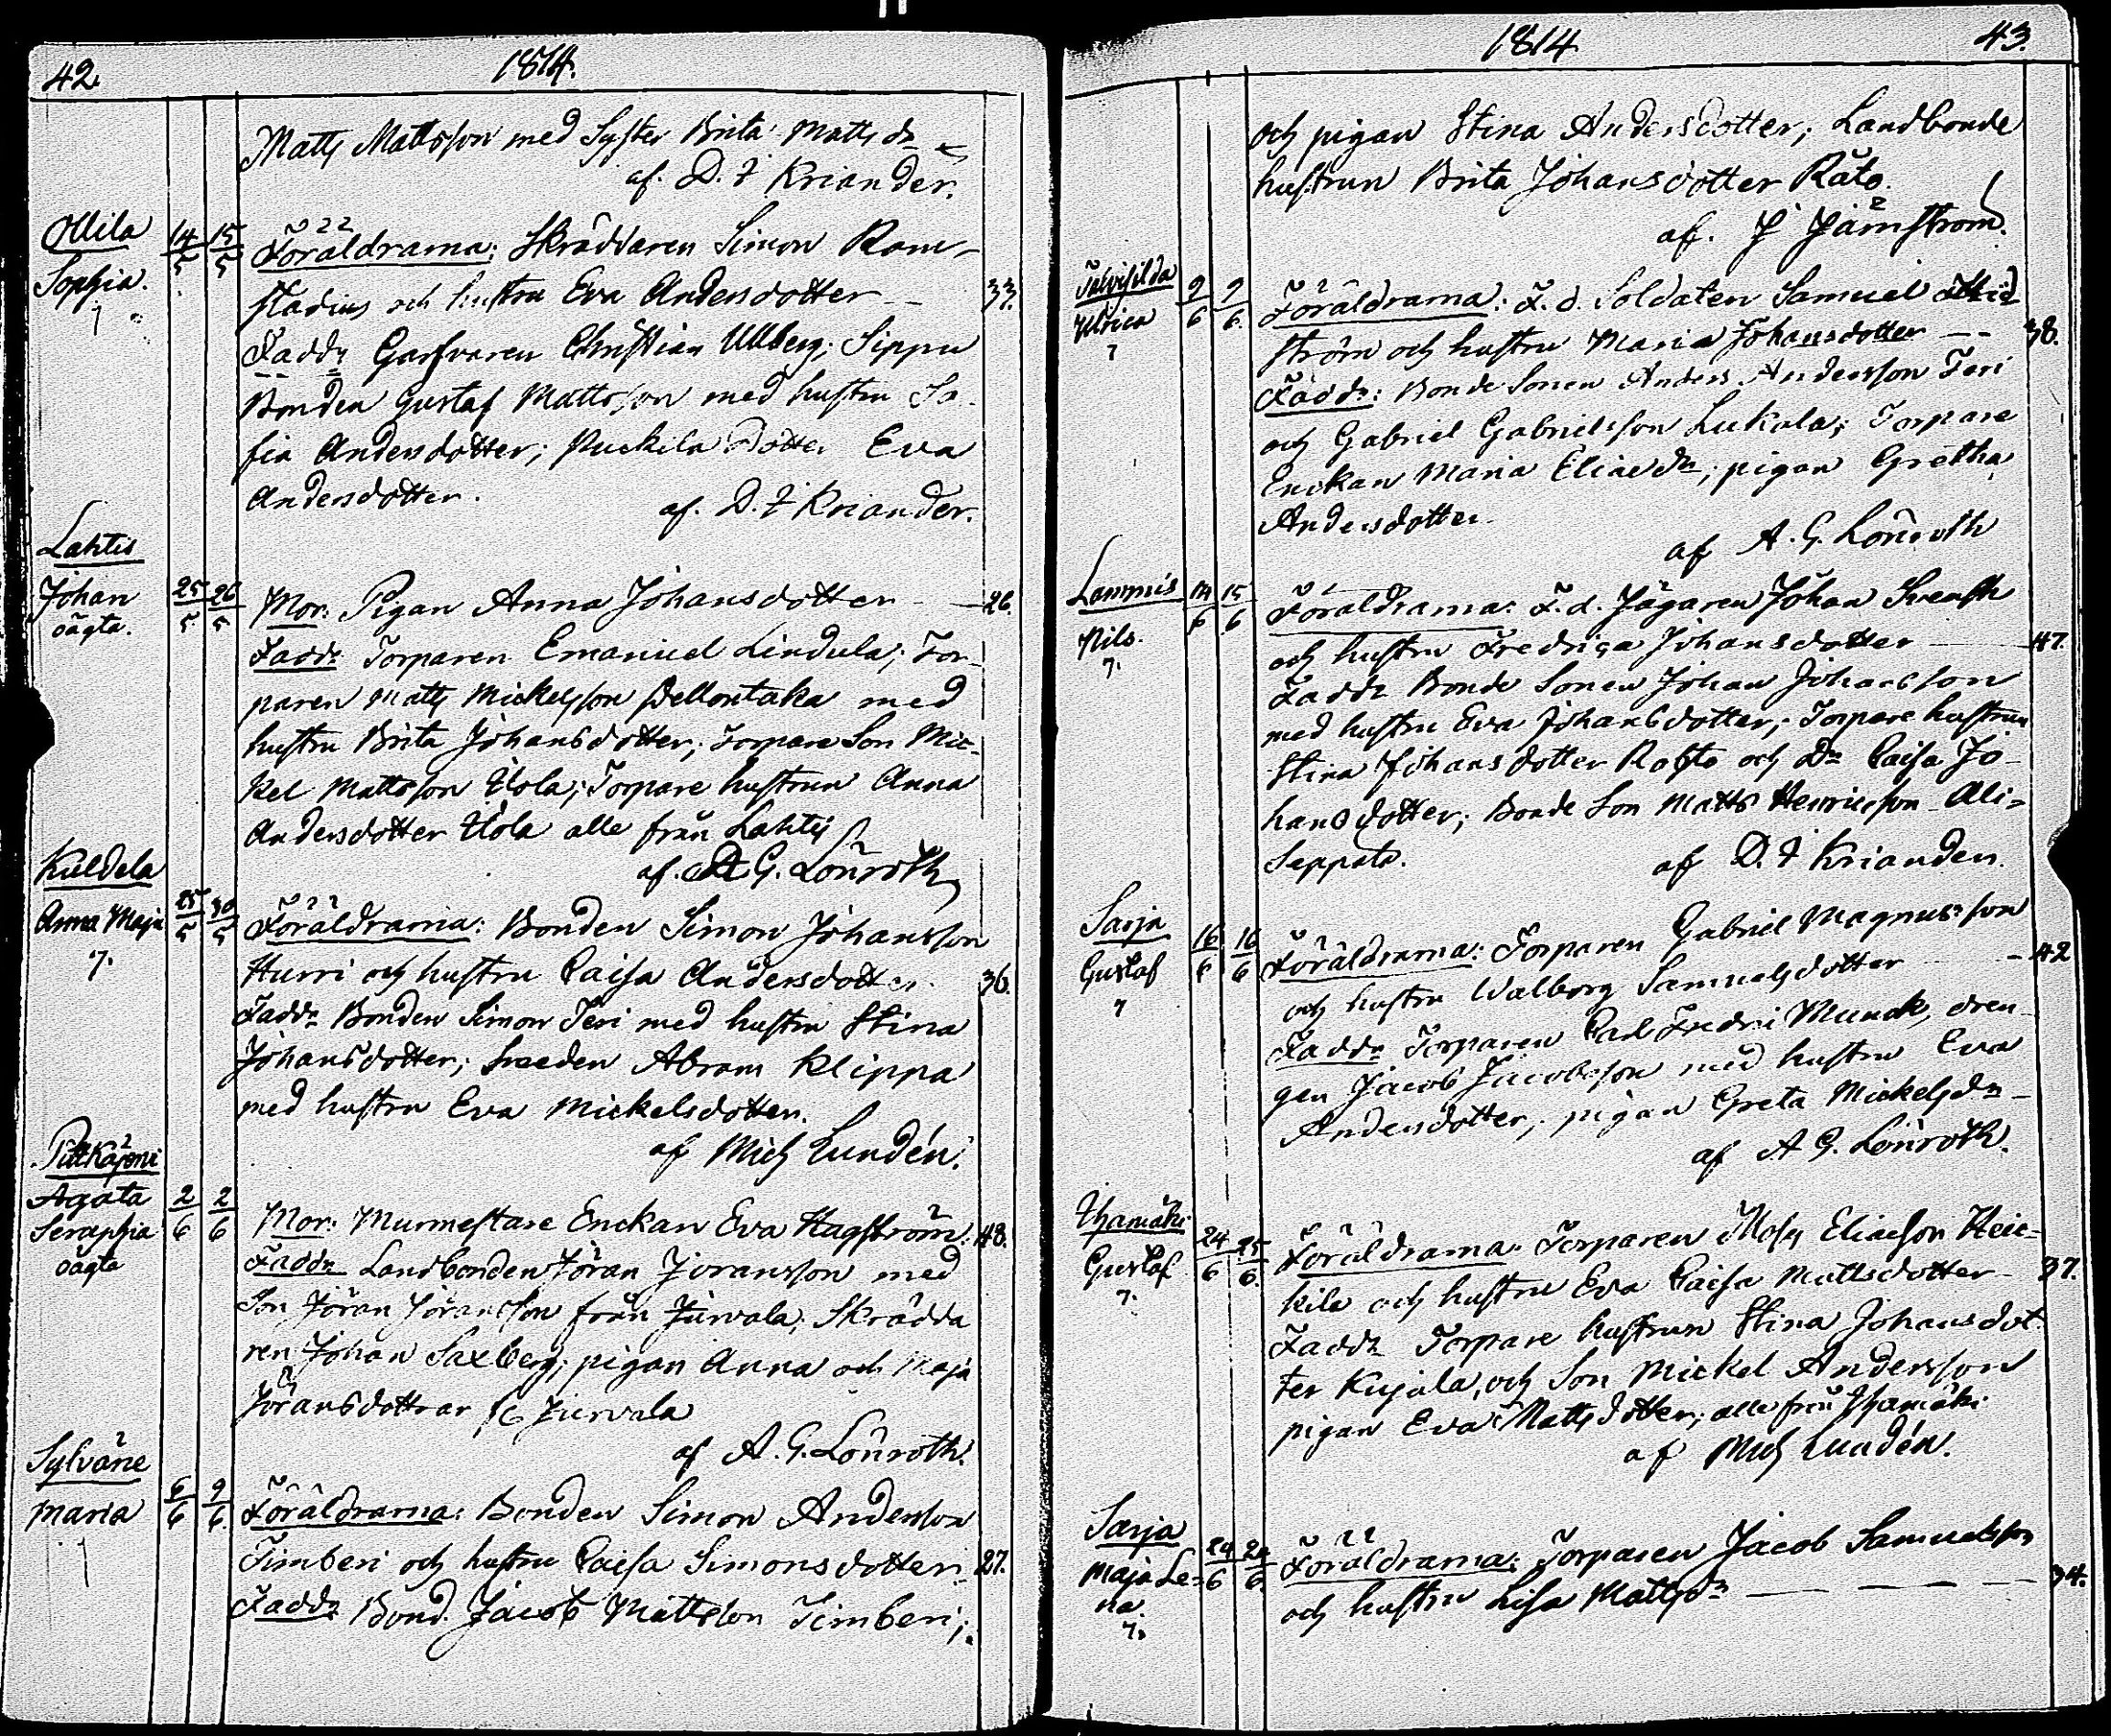 42. 1814.
Matts Mattsson med Syster Brita Matts dr
af. D. F Kriander.
Ollila
Sophia.
14/5 15/5
Föräldrarna: Skräddaren Simon Ram-
stadius och hustru Eva Andersdotter 33.
Faddr Garfvaren Christian Ullberg; Sippu
Bonden Gustaf Mattsson med hustru So-
fia Andersdotter; Puckila Dotter Eva
Andersdotter.
af. D. F Kriander.
Lahtis
Johan
oägta.
25/5 26/5
Mor: Pigan Anna Johansdotter 26.
Faddr Torparen Emanuel Lindula; Tor-
paren Matts Mickelsson Pellontaka med
hustru Brita Johansdotter; Torpare Son Mic-
kel Mattsson Uola; Torpare hustrun Anna
Andersdotter Uola alle från Lahtis
af. A G. Lönroth
Kuldela
Anna Maja
7.
25/5 30/5
Föräldrarna: Bonden Simon Johansson
Hurri och hustru Caisa Andersdotter. 36.
Faddr Bonden Simon Teri med hustru Stina
Johansdotter; Smeden Abram Klippa
med hustru Eva Mickelsdotter.
af Mich Lundén.
Pitkäjervi
Agata
Seraphia
oägta
2/6 2/6
Mor: Murmestare Enckan Eva Hagström. 48.
Faddr Landbonden Jöran Jöransson med
Son Jöran Jöransson från Jurvala; Skrädda
ren Johan Saxberg; pigan Anna och Maja
Jöransdottrar fr Jurvala
af A. G. Lönroth.
Sylväne
Maria
6/6 9/6
Föräldrarna: Bonden Simon Andersson
Timberi och hustru Caisa Simonsdotter 27.
Faddr Bond. Jacob Mattsson Timberi;
1814 43.
och pigan Stina Andersdotter; Landbonde
hustrun Brita Johansdotter Räto.
af. J Järnström.
Ulrica
7
9/6 9/6
Föräldrarna: F. d. Soldaten Samuel
ström och hustru Maria Johansdotter 38.
Faddr: Bonde Sonen Anders Andersson Teri
och Gabriel Gabrielsson Lukala; Torpare
Enckan Maria Elias dr; pigan Gretha
Andersdotter
af A. G. Lönroth
Lammis
Nils.
7.
14/6 15/6
Föräldrarna: F. d. Jägaren Johan Svensk
och hustru Fredrica Johansdotter 47.
Faddr Bonde Sonen Johan Johansson
med hustru Eva Johansdotter; Torpare hustrun
Stina Johansdotter och Dr Caisa Jo-
hansdotter; Bonde Son Matts Henricsson Ali-
Seppata.
af D. F Kriander.
Sarja
Gustaf
7
16/6 16/6
Föräldrarna: Torparen Gabriel Magnusson
och hustru Walborg Samuelsdotter 42
Faddr Torparen Carl Fredric Munck, dren-
gen Jacob Jacobsson med hustru Eva
Andersdotter; pigan Greta Mickelsdr
af A G. Lönroth.
Ihamäki
Gustaf
7.
24/6 25/6
Föräldrarna: Torparen Moses Eliasson Heic-
kila och hustru Eva Caisa Mattsdotter 37.
Faddr Torpare hustrun Stina Johansdot
ter Kujala, och Son Mickel Andersson
pigan Eva Mattsdotter; alle från Ihamäki.
af Mich Lundén.
Sarja
Maja Le-
na.
7.
24/6 24/6
Föräldrarna: Torparen Jacob Samuelsson
och hustru Lisa Mattsdr 34.